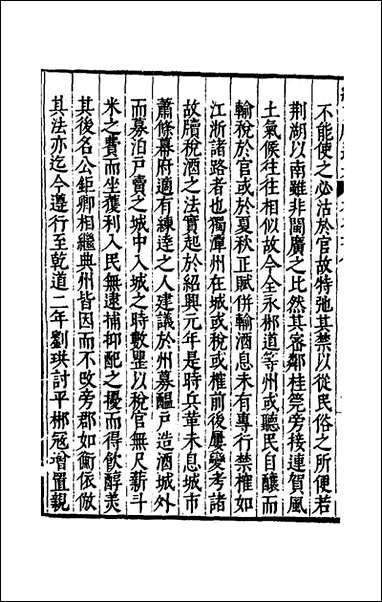 不能使之必沽於官故特弛其禁以從民俗之所便若
荆湖以南雖非閩廣之比然其密鄰桂筦旁接連賀風
土氣候往往相似故今全永郴道等州或聽民自釀而
輸稅於官或於夏秋正賦併輸酒息未有專行禁榷如
江浙諸路者也獨潭州在城或稅或榷前後屢變考諸
故牘稅酒之法實起於紹興元年是時兵革未息城市
蕭條幕府適有練達之人建議於州募醞戶造酒城外
而募泊戶賣之城中入城之時數罌以稅官無尺薪斗
米之費而坐獲利入民無逮捕抑配之擾而得飲醇美
其後名公鉅卿相繼典州皆因而不改旁郡如衡依倣
其法亦迄今遵行至乾道二年劉珙討平郴冦增置親